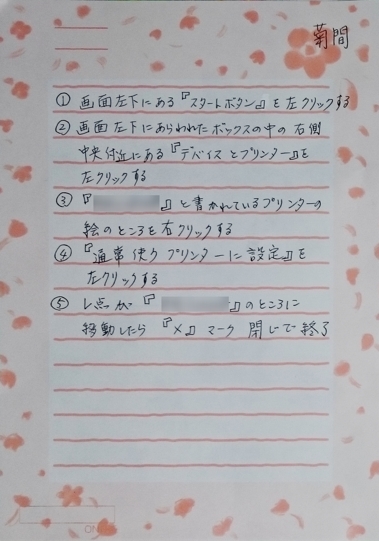 菊間
① 画面左下にある『スタートボタン』を左クリックする
② 画面左下にあらわれたボックスの中の右側
中央付近にある『デバイスとプリンター』を
左クリックする
③ 『 』と書かれているプリンターの
絵のところを右クリックする
④ 『通常使うプリンターに設定』を
左クリックする
⑤ レ点が『 』のところに
移動したら『×』マーク閉じで終了